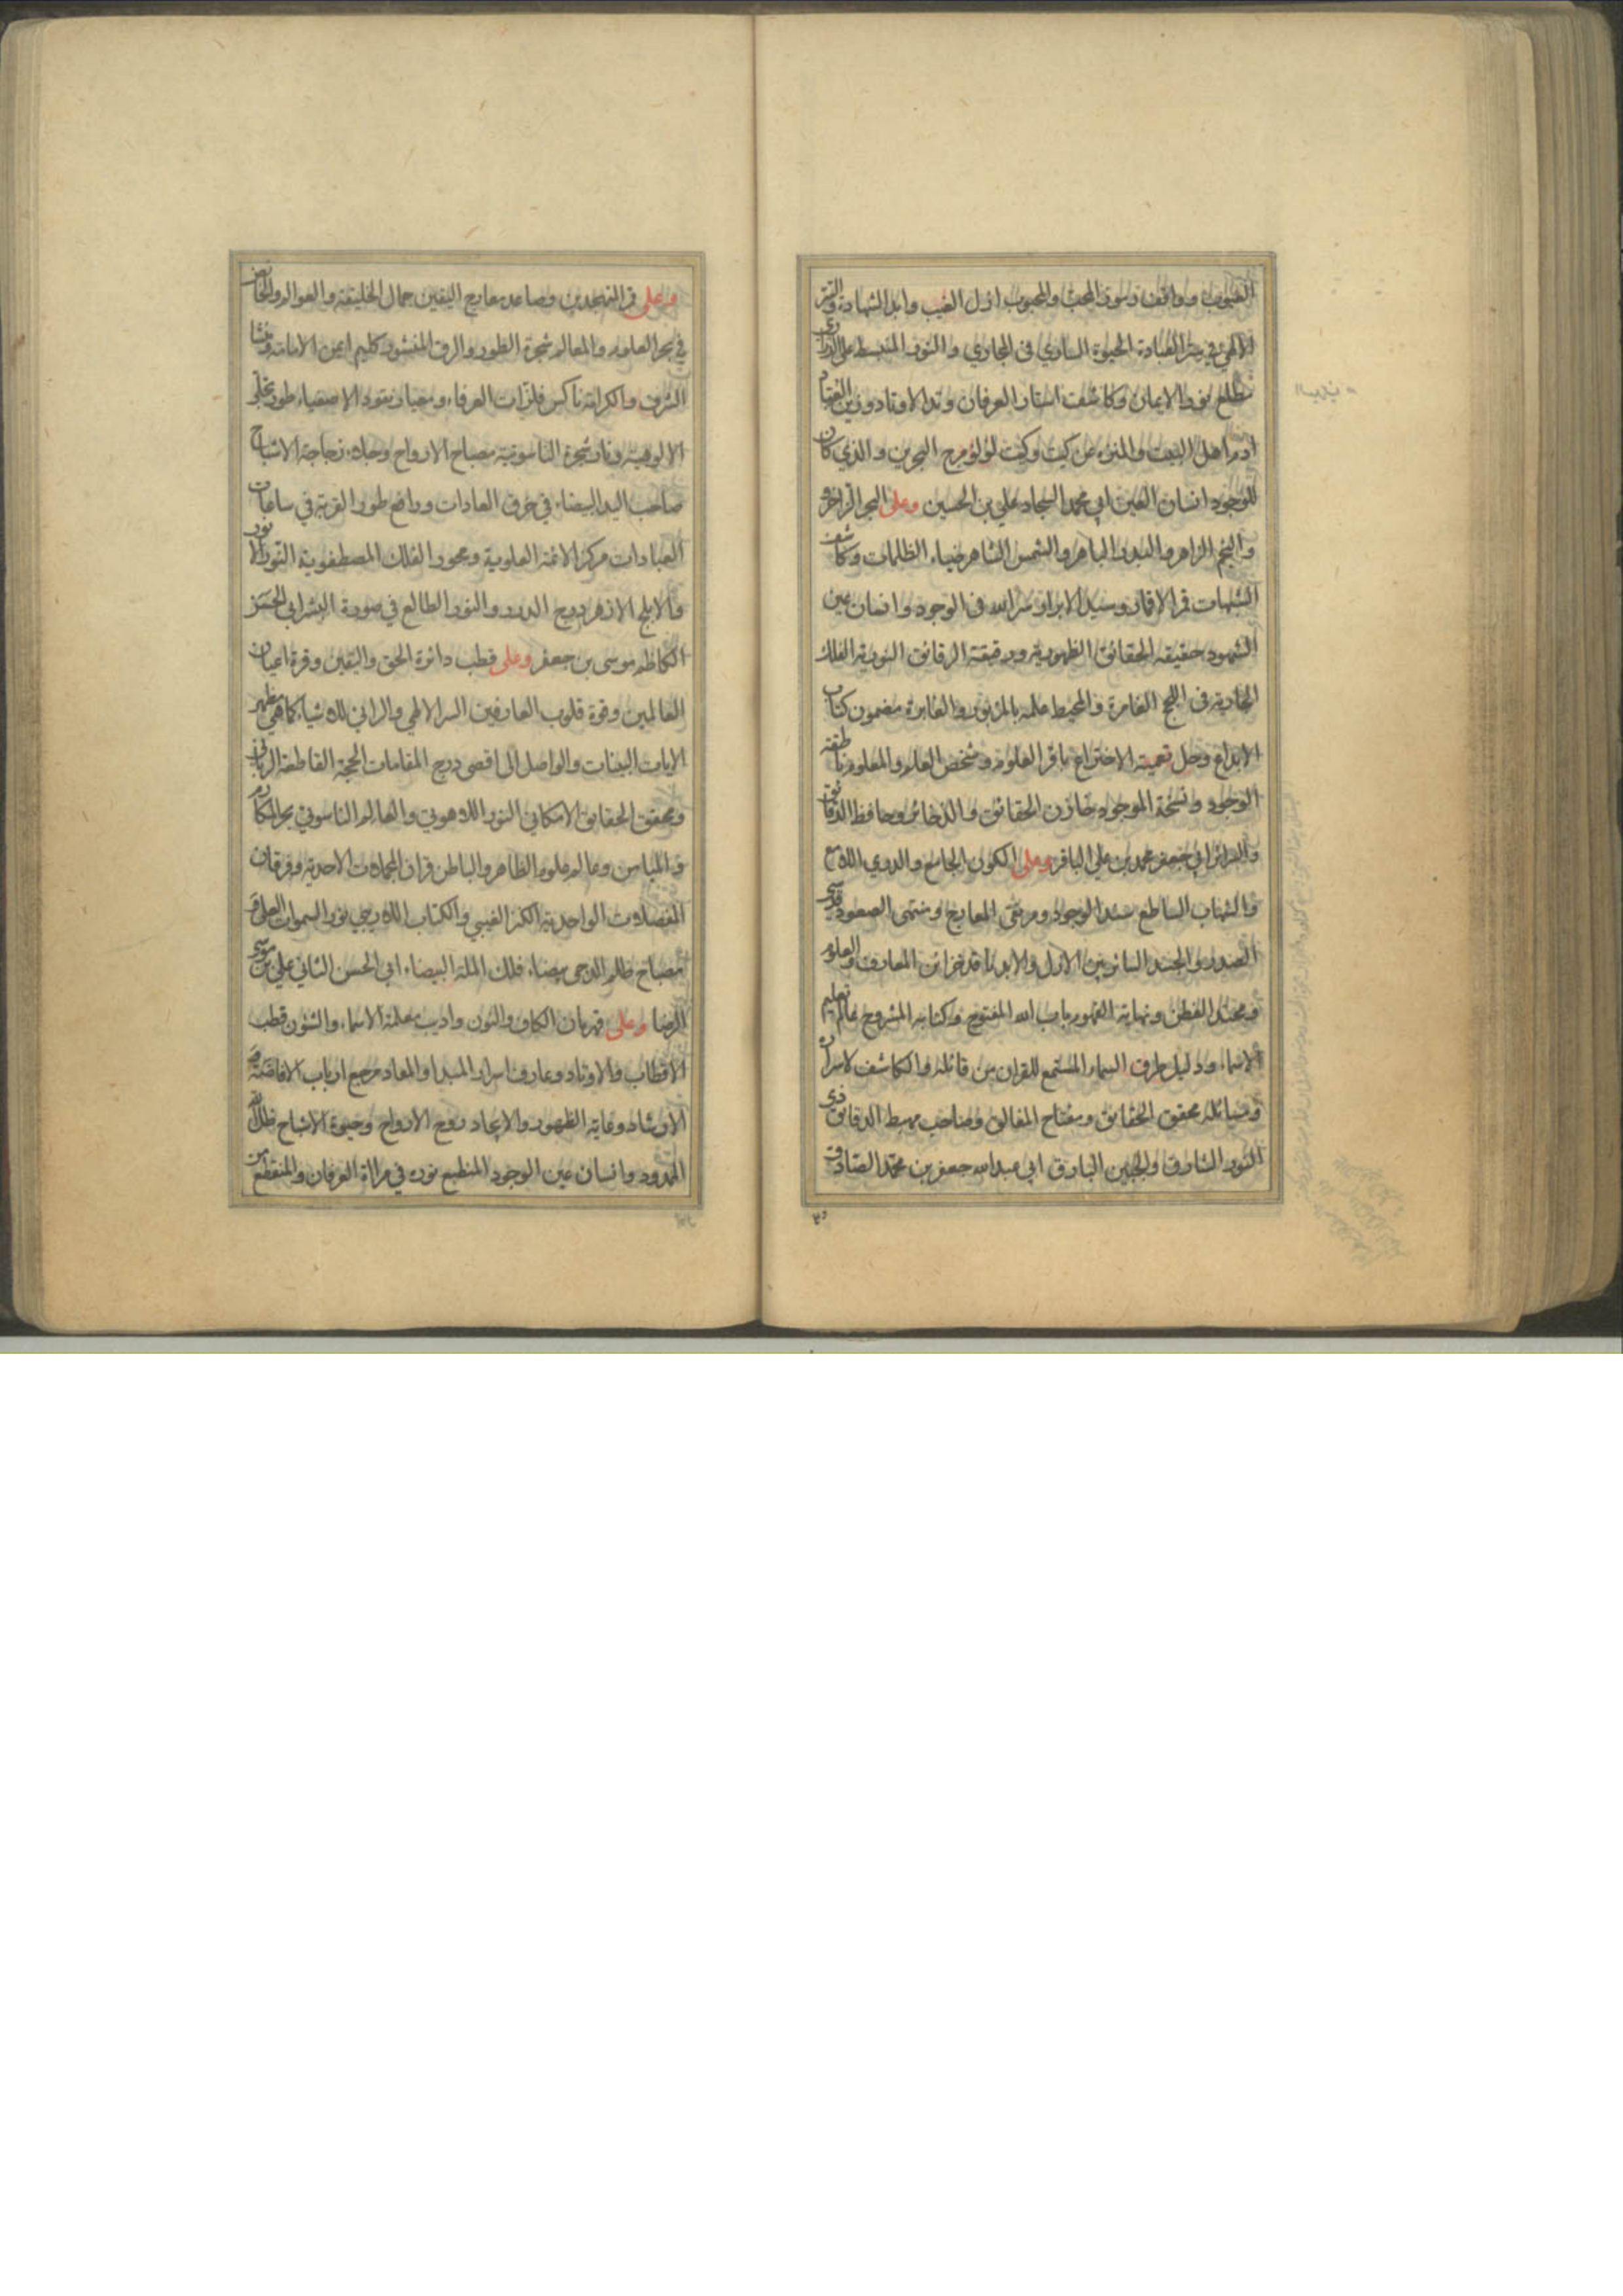 الغيوب وواقف وسوق المحب والمحبوب ازل الغيب وابد الشهادة والسر
الالهي في ستر العبادة الحيوة الساري في المجاري و النور المنبسط على الدراري
مطلع نور الايمان وكاشف استار العرفان وتد الاوتاد وزين العباد
ادم اهل البيت والمنزه عن كيت وكيت لؤلؤ مرج البحرين والذي كان
للوجود انسان العين ابي محمد السجاد علي بن الحسين وعلى البحر الزاخر و
والنجم الزاهر والبدر الباهر والشمس الشاهر ضياء الظلمات وكاشف
الشبهات قمر الاقمار وسيد الابرار سر الله فى الوجود وانسان عين
الشهود حقيقة الحقائق الظهورية ودقيقة الرقائق النورية الفلك
الجارية فى اللجج الغامرة والمحيط علمه بالزبور والغابرة مضمون كتاب
الابداع وحل تعمية الاختراع باقر العلوم وشخص العلم والمعلوم ناطقة
الوجود ونسخة الموجود خازن الحقائق والذخائر وحافظ الدقائق
والسرائر ابي جعفر محمد بن علي الباقر وعلى الكون الجامع والدري اللامع
والشهاب الساطع سند الوجود ومرتقى المعارج ومنتهى الصعود قدسي
الصدور الجسد السائر بين الازل والابد ناقد خزائن المعارف والعلوم
ومحتد الفطن ونهاية الفهوم باب الله المفتوح وكتابه المشروح عالم تعليم
الاسماء ودليل طرق السماء المستمع للقران من قائله والكاشف لاسراره
ومسائله محقق الحقائق ومفتاح المغالق وصاحب مهبط الدقائق ذى
النور الشارق والجبين البارق ابي عبد الله جعفر بن محمد الصادق
٣٥
وعلى قمر المتهجدين وصاعد معارج اليقين جمال الخليقة والعوالم والخائض
في بحر العلوم والمعالم شجرة الطور والرق المنشور كليم ايمن الامامة ومنشا
الشرف والكرامة ناكس فلزات العرفاء ومعيار نقود الاصفياء طور تجلى
الالوهية ونار شجرة الناسوتية مصباح الارواح وجلاء زجاجة الاشباح
صاحب اليد البيضاء في خرق العادات وواضع طور القربة في ساعات
العبادات مركز الائمة العلوية ومحور الفلك المصطفوية النور الانور
والابلج الازهر روح الدرر والنور الطالع في صورة البشر ابي الحسن
الكاظم موسى بن جعفر وعلى قطب دائرة الحق واليقين وقرة اعيان
العالمين وقوة قلوب العارفين السر الالهي والرائي للاشياء كما هي مظهر
الايات البينات والواصل الى اقصى درج المقامات الحجة القاطعة الرباني
ومحقق الحقايق الامكاني النور اللاهوتي والعالم الناسوتي بحر المكارم
والميامن وعالم علوم الظاهر والباطن قران المجملات الاحدية وفرقان
المفصلات الواحدية الكنز الغيبي والكتاب اللاريبي نور السموات العلى و
مصباح ظلم الدجى بيضاء فلك الملة البيضاء ابي الحسن الثاني علي بن موسى
الرضا وعلى قهرمان الكاف والنون واديب معلمة الاسماء والشئون قطب
الاقطاب والاوتاد وعارف اسرار المبدا والمعاد مرجع ارباب الافاضة و
الارشاد وغاية الظهور والايجاد روح الارواح وحيوة الاشباح ظل الله
الممدود وانسان عين الوجود المنطبع نوره في مراة العرفان والمنقطع من